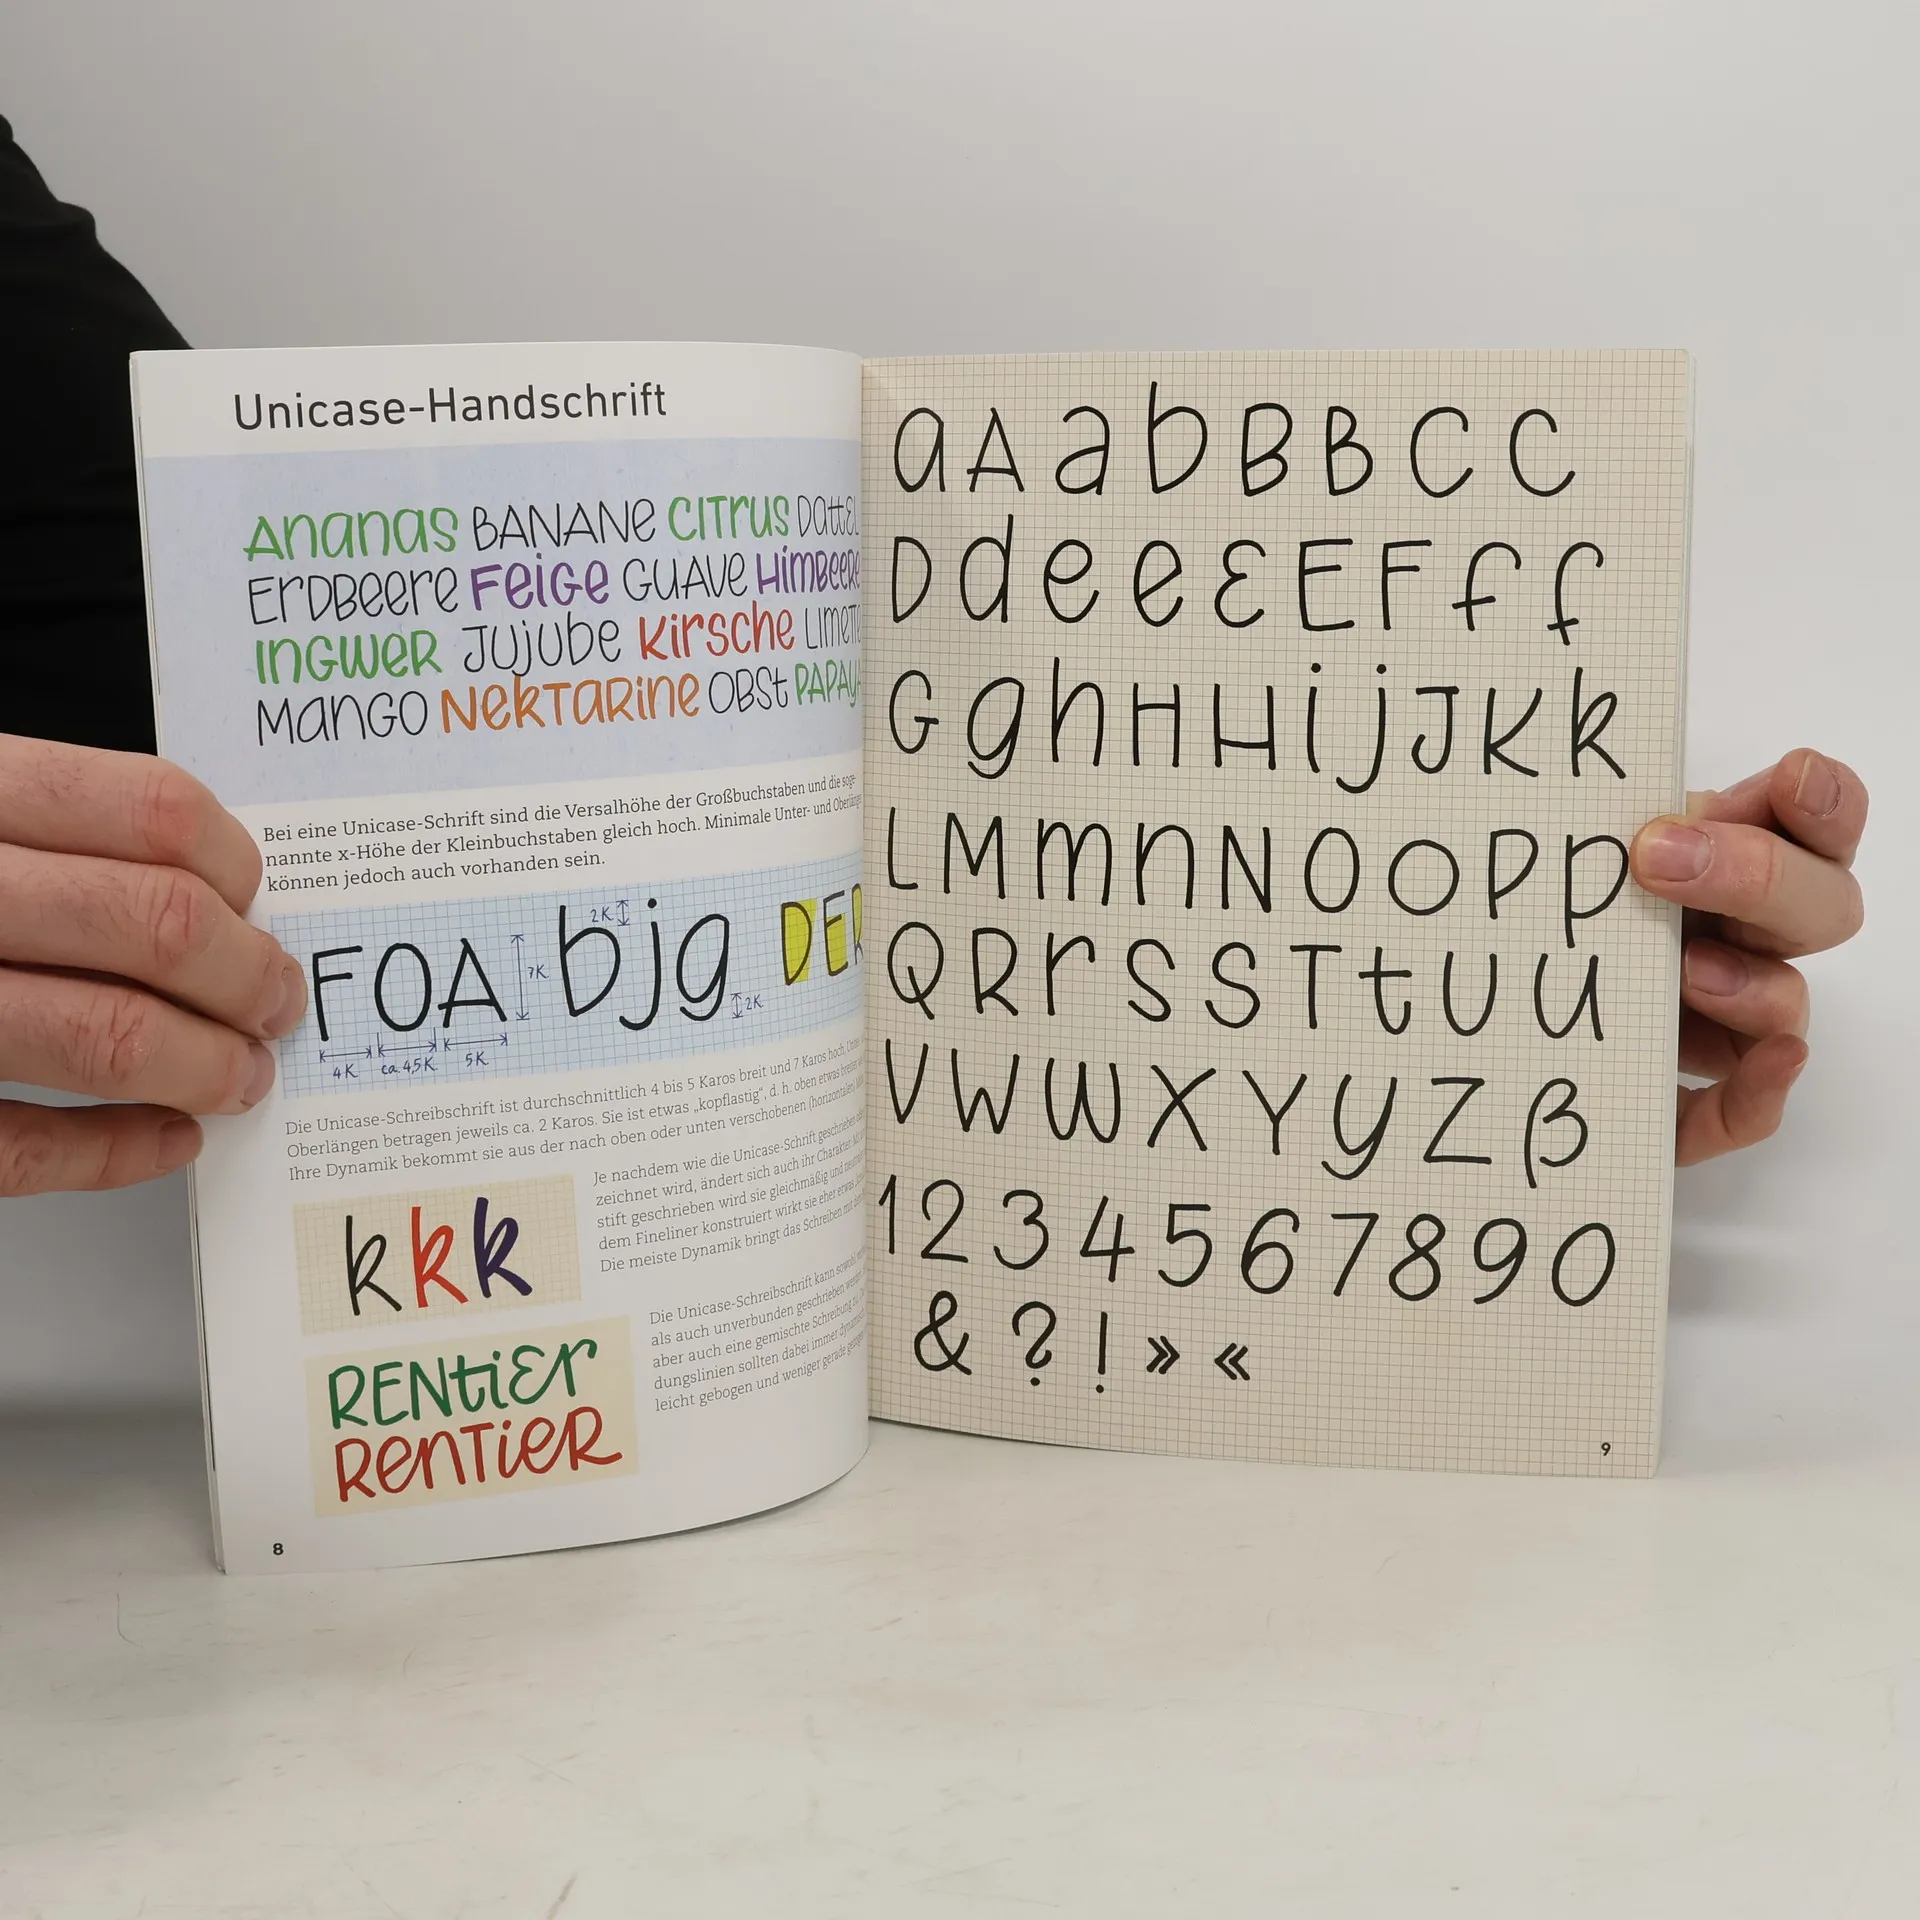 Unicase-Handschrift
Ananas BANANE CITrUS DattEL
ErDBeere FeiGe GUAVe HimBeere
InGWeR JUjUbe Kirsche LIMET
MANGO NeKTaRine OBSt PAPAYA
Bei eine Unicase-Schrift sind die Versalhöhe der Großbuchstaben und die soge-
nannte x-Höhe der Kleinbuchstaben gleich hoch. Minimale Unter- und Oberlängen
können jedoch auch vorhanden sein.
FOA bjg DER
2K
7K
2K
4K ca. 4,5K 5K
Die Unicase-Schreibschrift ist durchschnittlich 4 bis 5 Karos breit und 7 Karos hoch. Unter-
Oberlängen betragen jeweils ca. 2 Karos. Sie ist etwas „kopflastig“, d. h. oben etwas breiter
Ihre Dynamik bekommt sie aus der nach oben oder unten verschobenen (horizontalen)
Je nachdem wie die Unicase-Schrift geschrieben
zeichnet wird, ändert sich auch ihr Charakter.
stift geschrieben wird sie gleichmäßig und
dem Fineliner konstruiert wirkt sie eher etwas
Die meiste Dynamik bringt das Schreiben mit
kkk
Die Unicase-Schreibschrift kann sowohl
als auch unverbunden geschrieben werden
aber auch eine gemischte Schreibung
dungslinien sollten dabei immer
leicht gebogen und weniger gerade
RENtiEr
RenTieR
8
a A a b B B C C
D d e e ε E F f f
G g h H H i j J K k
L M m n N O O P p
Q R r S S T t U u
V W w X Y y Z ß
1 2 3 4 5 6 7 8 9 0
& ? ! » «
9